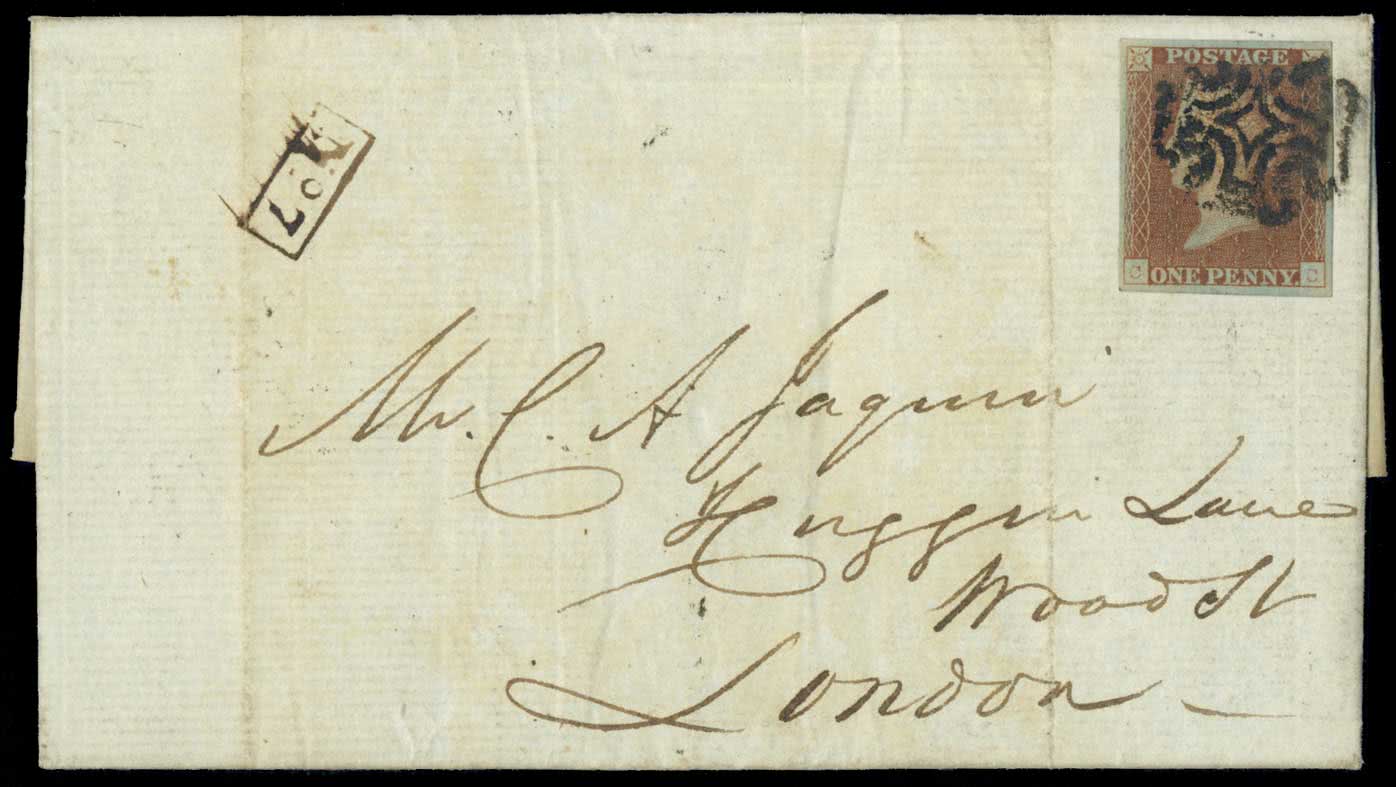 POSTAGE
C ONE PENNY. C
No 7
Mr. C. A Jaquin
Huggin Lane
Wood St
London